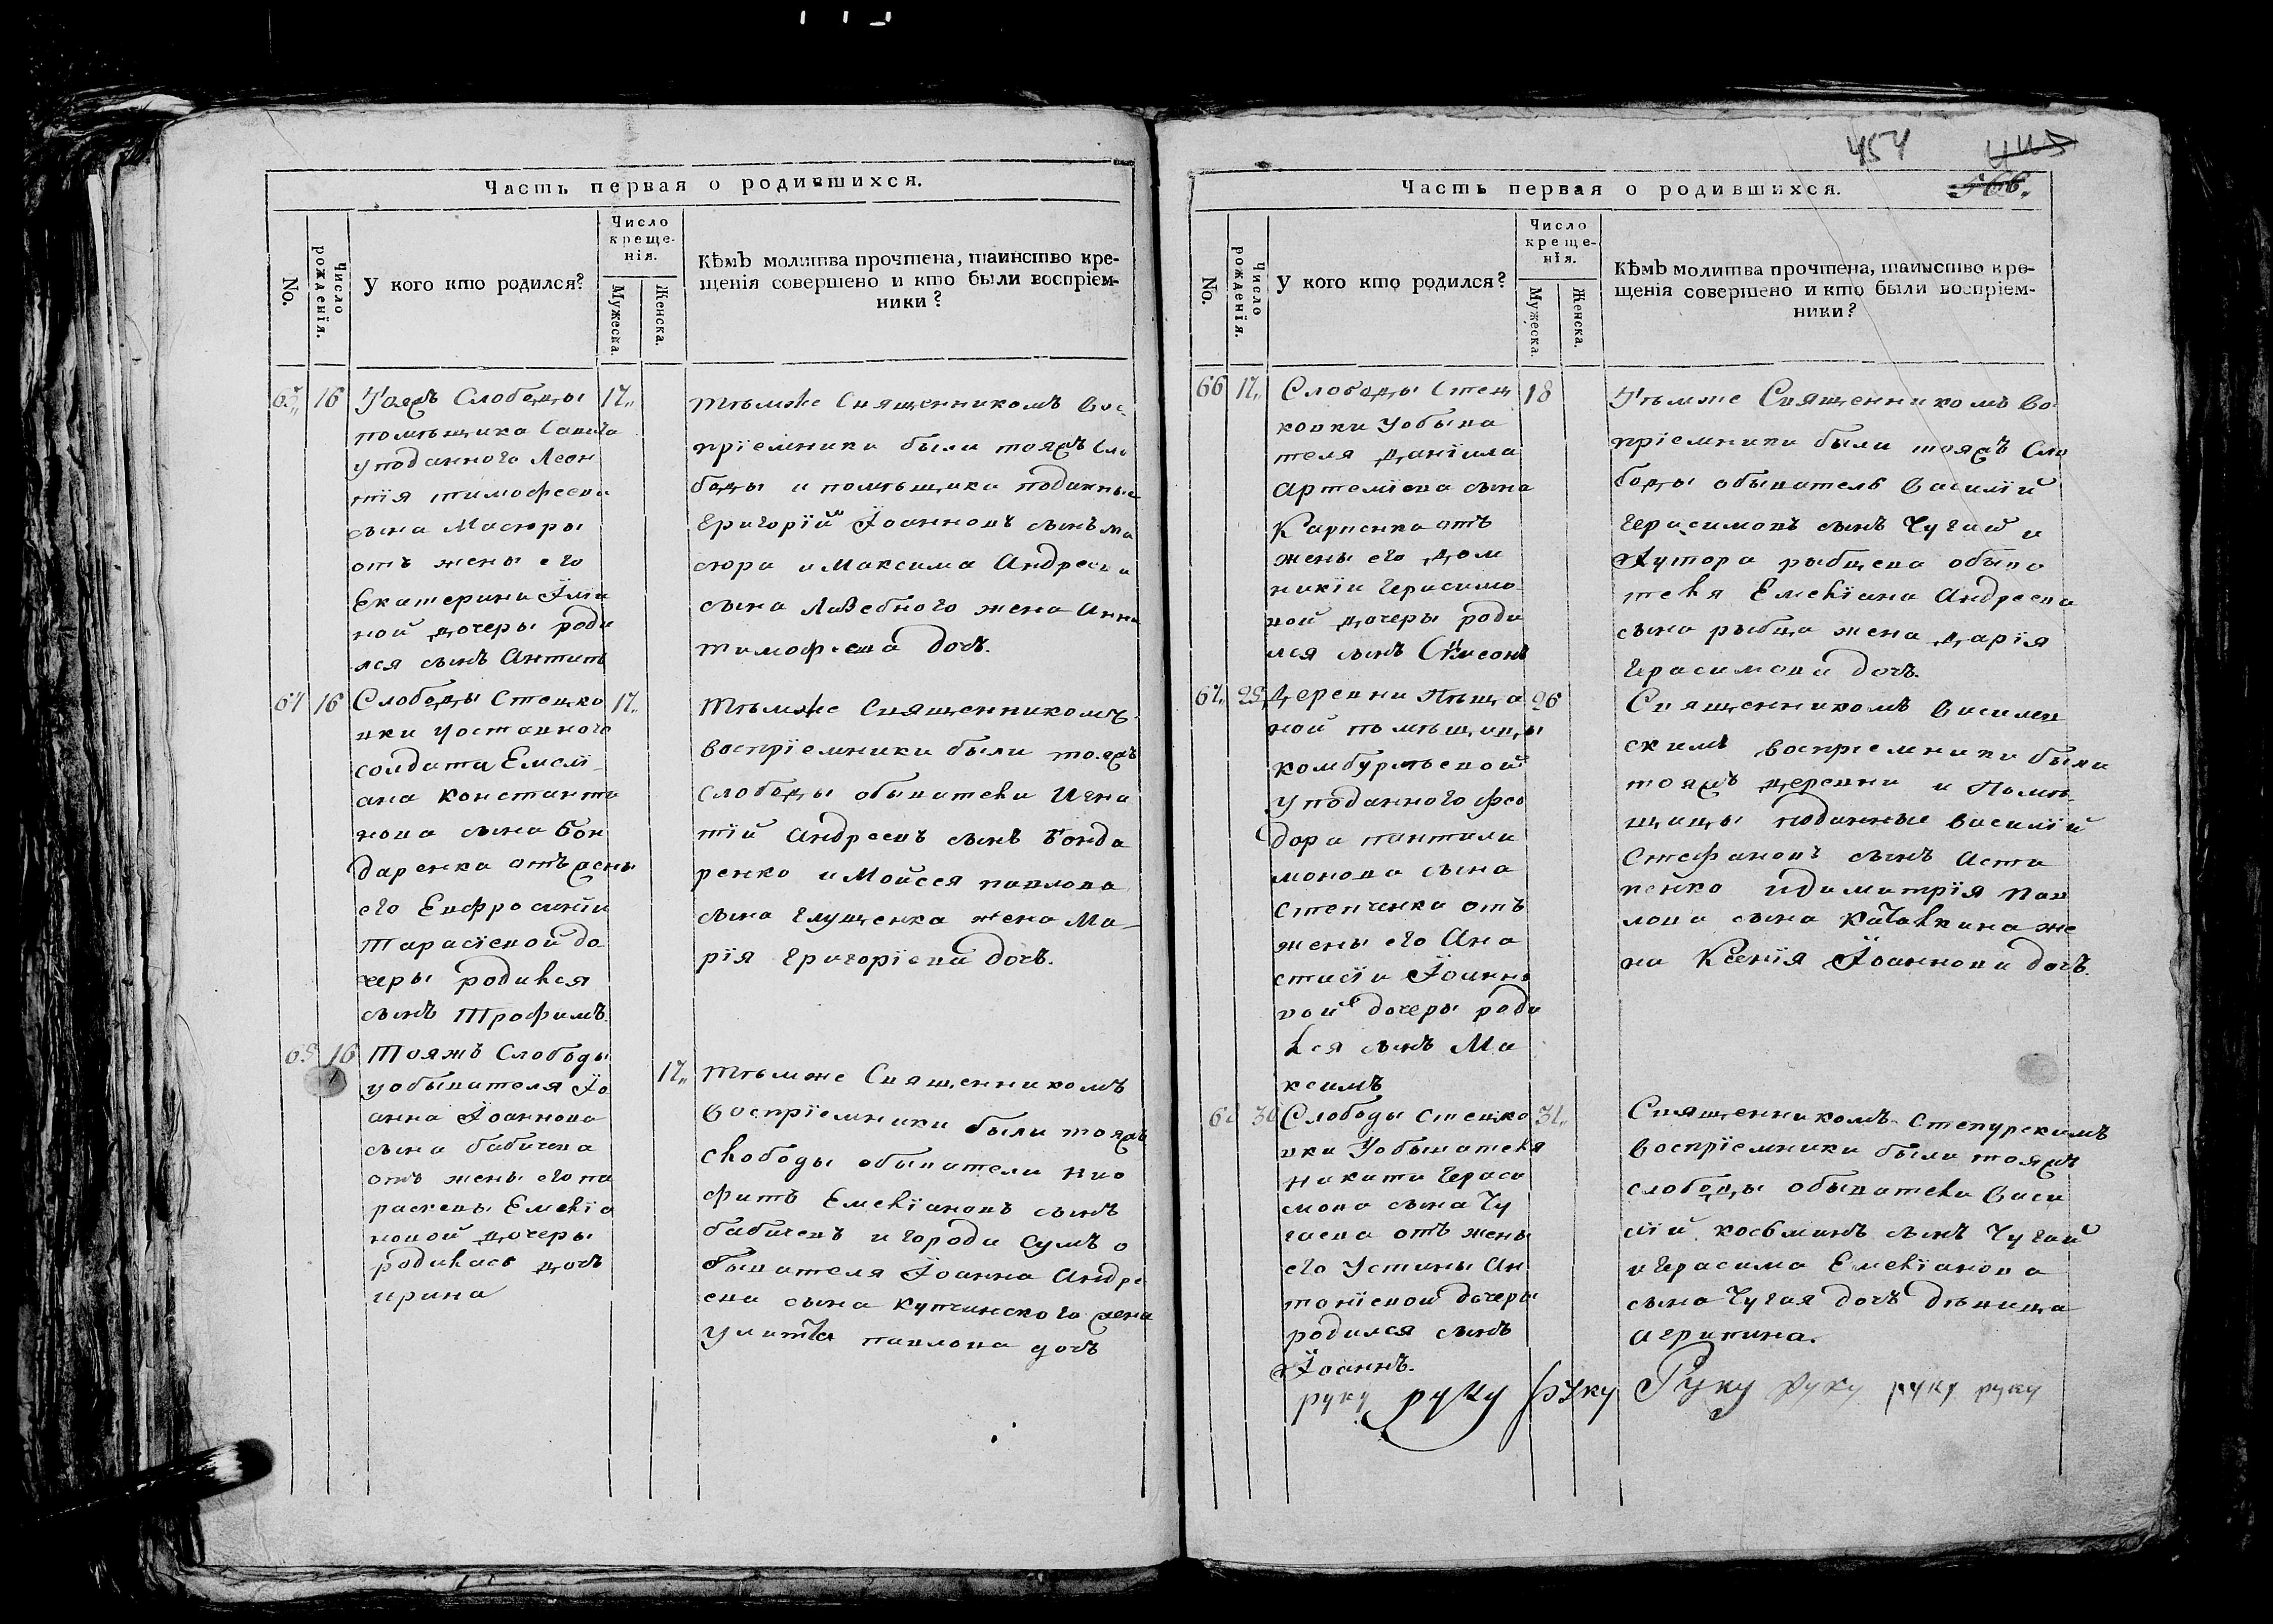 Часть первая о родившихся.
No.
Число рожденія.
У кого кто родился?
Число
креще-
нія.
Мужеска.
Женска.
Кѣмъ молитва прочтена, таинство кре-
щенія совершено и кто были воспріем-
ники?
63 16 Тояжъ Слободы 17
помѣщика
уподанного Леон
тія тимофеева
сына Масюры
отъ жены его
Екатерины Іліи
ной дочеры роди
лся сынъ Антипъ
тѣмже Священникомъ вос
пріемники были тояжъ сло
боды и помѣщика поданные
Григорій Іоанновъ сынъ ма
сюра и Максима Андреева
сына Лазебного жена Анна
тимофеева дочъ.
64 16 Слободы Стецко 17
вки уоставного
солдата Емелі
ана константи
нова сына Бон
даренка отъ жены
его Евфросиніи
Тарасіевой до
черы родился
сынъ Трофимъ
Тѣмже Священникомъ
воспріемники были тояжъ
слободы обыватели Игна
тій Андреевъ сынъ Бонда
ренко и Мойсея павлова
сына глущенка жена Ма-
рія Григоріева дочъ.
65 16 Тояжъ Слободы
уобывателя Іо
анна Іоаннова
сына бабичева
отъ жены его па
раскевы Емеліа
новой дочеры
родилась дочъ
ирина
17 Тѣмже Священникомъ
воспріемники были тояжъ
слободы обыватели Нио
фитъ Емеліановъ сынъ
бабичевъ и города Сумъ о
бывателя Іоанна Андре
ева сына Купчинского жена
улита павлова дочъ
454
Часть первая о родившихся.
No.
Число рожденія.
У кого кто родился?
Число
креще-
нія.
Мужеска.
Женска.
Кѣмъ молитва прочтена, таинство кре-
щенія совершено и кто были воспріем-
ники?
66 17 Слободы Стец 18
ковки уобыва
теля Даніила
Артеміева сына
Карпенка отъ
жены его Дом
никіи Герасимо
вой дочеры роди
лся сынъ Сімеонъ
Тѣмже Священникомъ во
пріемники были тояжъ Сло
боды обыватель Василій
Герасимовъ сынъ Чугай и
Хутора рыбцева обыва
теля Емеліана Андреева
сына рыбца жена Дарія
Герасимова дочъ.
67 25 Деревни Пѣща 26
ной помѣщицы
комбурлѣевой
уподанного фео
дора пантели
монова сына
Степченка отъ
жены его Ана
стасіи Іоанно
вой дочеры роди
лся сынъ Ма
ксимъ
Священникомъ Василев
скимъ воспріемники были
тояжъ деревни и Помѣ
щицы поданные Василій
Стефановъ сынъ Аста
пенко идимитрія пав
лова сына Качалкина же
на Ксенія Іоаннова дочъ.
68 30 Слободы Стецко 31
вки Уобывателя
никити Гераси
мова сына Чу
гаева отъ жены
его Устины Ан
тоніевой дочеры
родился сынъ
Іоаннъ.
Священникомъ Степурскимъ
воспріемники были тояжъ
слободы обыватели Васи
лій косьминъ сынъ Чугай
и Герасима Емеліанова
сына Чугая дочъ дѣвица
Агрипина.
руку руку руку Руку руку руку руку